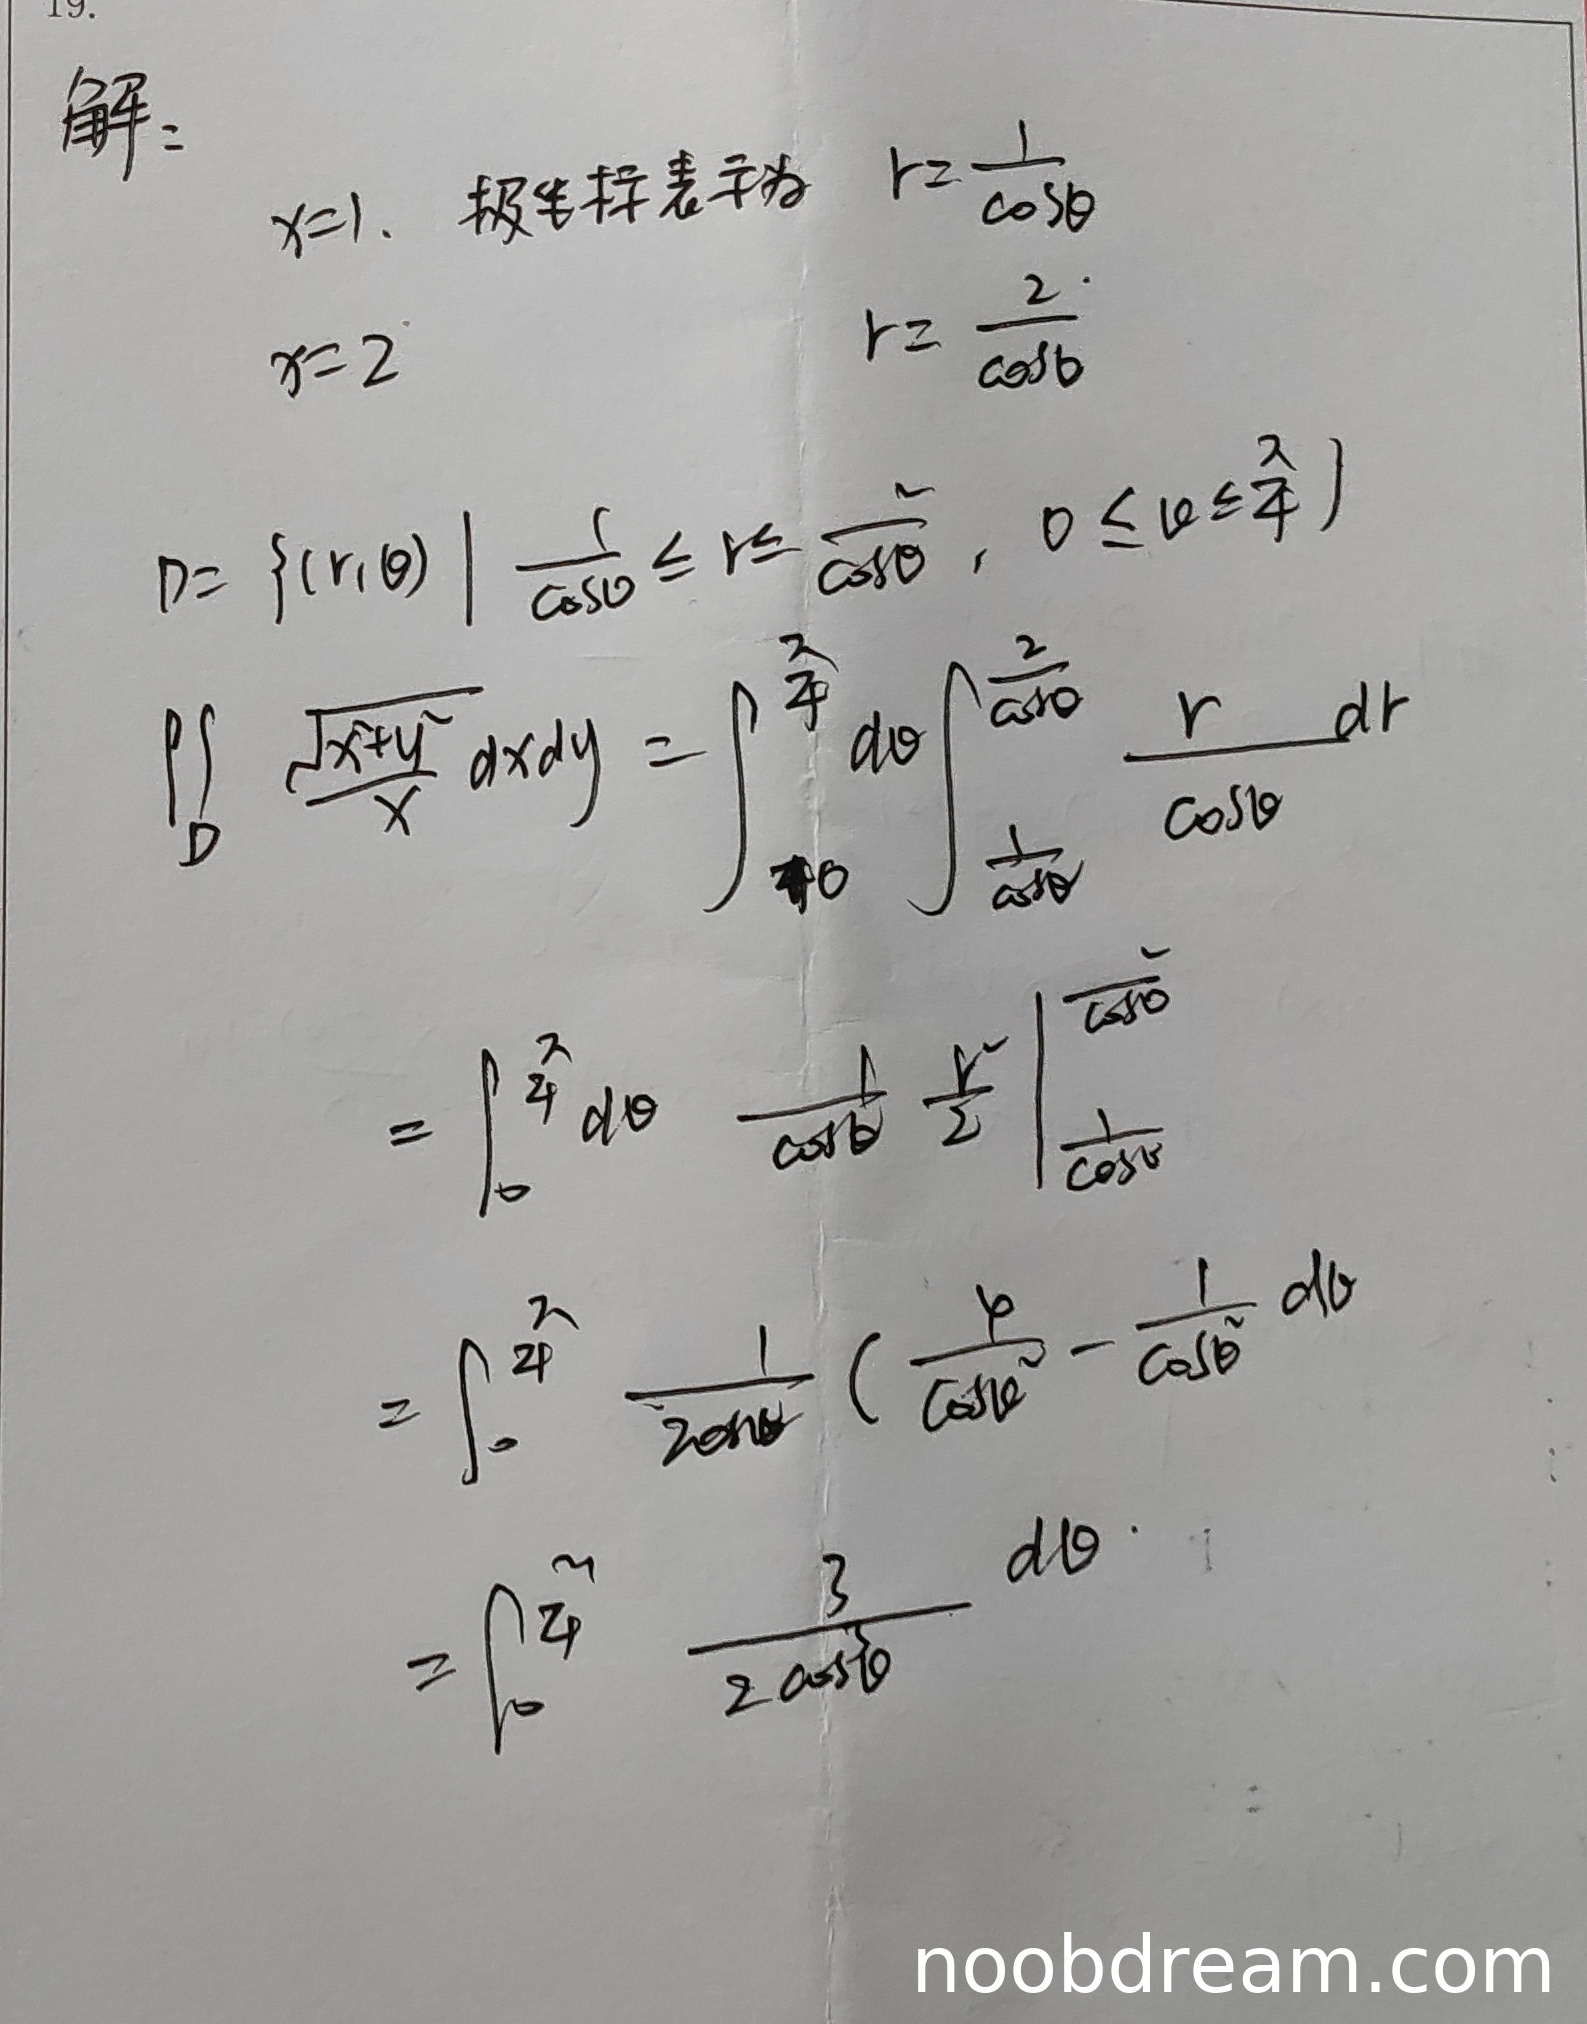 19.
解:
x=1. 极坐标表示为 r=1/cosθ
x=2 r=2/cosθ
D={(r,θ)|1/cosθ≤r≤2/cosθ, 0≤θ≤π/4}
∬_D √(x²+y²)/x dxdy = ∫_0^{π/4} dθ ∫_{1/cosθ}^{2/cosθ} r/cosθ dr
= ∫_0^{π/4} dθ 1/cosθ r²/2 |_{1/cosθ}^{2/cosθ}
= ∫_0^{π/4} 1/2cosθ (4/cosθ² - 1/cosθ² dθ
= ∫_0^{π/4} 3/2cos³θ dθ.
noobdream.com